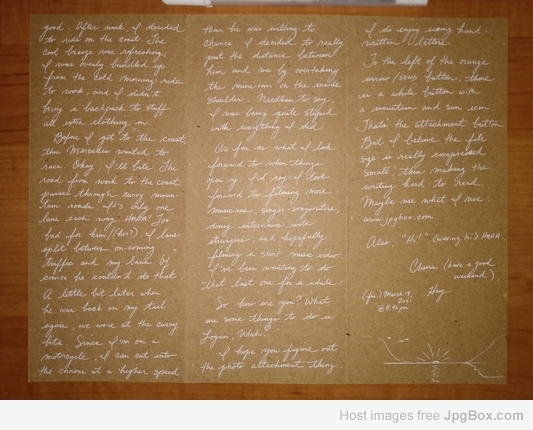 good. After work I decided
to ride on the coast. The
cool breeze was refreshing.
I was overly bundled up
from the cold morning ride
to work, and I didn't
bring a backpack to stuff
all extra clothing in.
Before I got to the coast,
this Mercedes wanted to
race. Okay, I'll bite. The
road from work to the coast
passes through curvy moun-
tain roads. It's only one
lane each way. HAHA! Too
bad for him/(her?). I lane
split between on-coming
traffic and my lane. Of
course he couldn't do that.
A little bit later when
he was back on my tail
again, we were at the curvy
bits. Since I'm on a
motorcycle, I can cut into
the corners at a higher speed
than he was willing to
chance. I decided to really
put the distance between
him and me by overtaking
the mini-van on the inside
shoulder. Needless to say,
I was being quite stupid
with everything I did.
As far as what I look
forward to when things
open up, I'd say I look
forward to filming more
musicians, singer-songwriters,
doing interviews with
strangers, and hopefully
filming a short music video.
I've been wanting to do
that last one for a while.
So how are you? What
are some things to do in
Logan, Utah.
I hope you figure out
the photo attachment thing.
I do enjoy seeing hand-
written letters.
To the left of the orange
arrow/send button, there
is a whole button with
a mountain and sun icon.
That's the attachment button.
But I believe the file
size is really compressed
small, thus making the
writing hard to read.
Maybe use what I use:
www.jpgbox.com
Also, "Hi!" (waving hi) HAHA.
Cheers (have a good
weekend),
(fri.) March 19,
2021
Host images free JpgBox.com